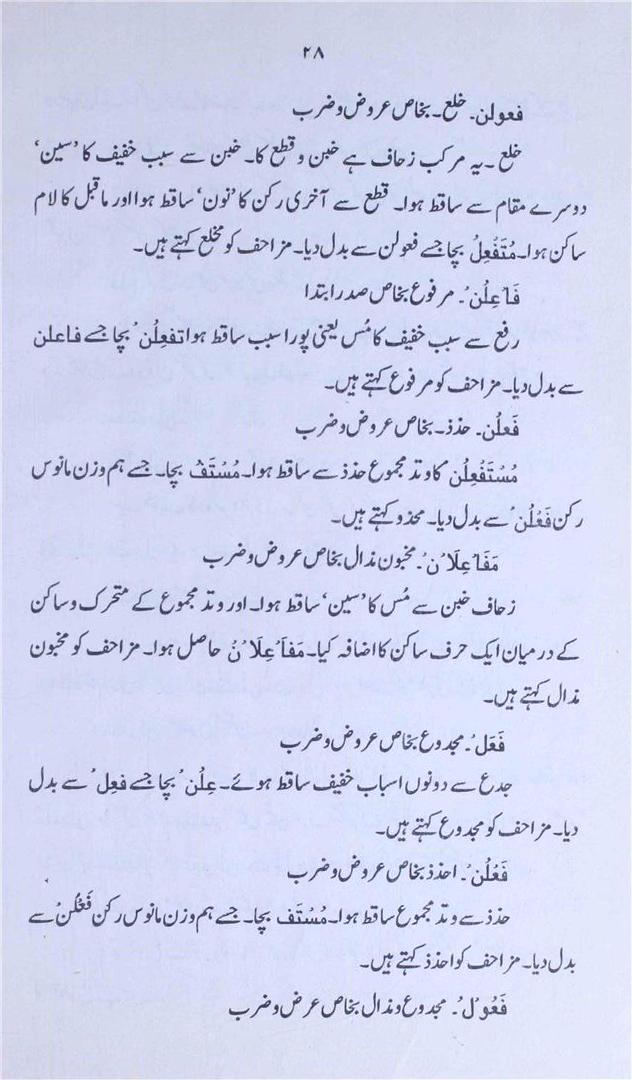 ۲۸
فعولن۔ خلع۔ بخاص عروض و ضرب
خلع۔ یہ مرکب زحاف ہے خبن و قطع کا۔ خبن سے سبب خفیف کا ’سین‘
دوسرے مقام سے ساقط ہوا۔ قطع سے آخری رکن کا ’نون‘ ساقط ہوا اور ماقبل کا لام
ساکن ہوا۔ مُتَفْعِلُ بچا جسے فعولن سے بدل دیا۔ مزاحف کو مخلع کہتے ہیں۔
فَاعِلُنْ۔ مرفوع بخاص صدر ابتدا
رفع سے سبب خفیف کا مُس یعنی پورا سبب ساقط ہوا تفعِلُنْ بچا جسے فاعلن
سے بدل دیا۔ مزاحف کو مرفوع کہتے ہیں۔
فَعْلُن۔ حذذ۔ بخاص عروض و ضرب
مُسْتَفْعِلُن کا وتد مجموع حذذ سے ساقط ہوا۔ مُسْتَفْ بچا۔ جسے ہم وزن مانوس
رکن فَعْلُنْ سے بدل دیا۔ محذو کہتے ہیں۔
مَفَاْعِلَاْنْ۔ مخبون مذال بخاص عروض و ضرب
زحاف خبن سے مُس کا ’سین‘ ساقط ہوا۔ اور وتد مجموع کے متحرک و ساکن
کے درمیان ایک حرف ساکن کا اضافہ کیا۔ مَفَاْعِلَاْنْ حاصل ہوا۔ مزاحف کو مخبون
مذال کہتے ہیں۔
فَعَلْ۔ مجدوع بخاص عروض و ضرب
جدع سے دونوں اسباب خفیف ساقط ہوئے۔ عِلُنْ بچا جسے فعِلْ سے بدل
دیا۔ مزاحف کو مجدوع کہتے ہیں۔
فَعْلُنْ۔ احذذ بخاص عروض و ضرب
حذذ سے وتد مجموع ساقط ہوا۔ مُسْتَفْ بچا۔ جسے ہم وزن مانوس رکن فَعْلُنْ سے
بدل دیا۔ مزاحف کو احذذ کہتے ہیں۔
فَعُوْلْ۔ مجدوع و مذال بخاص عرض و ضرب